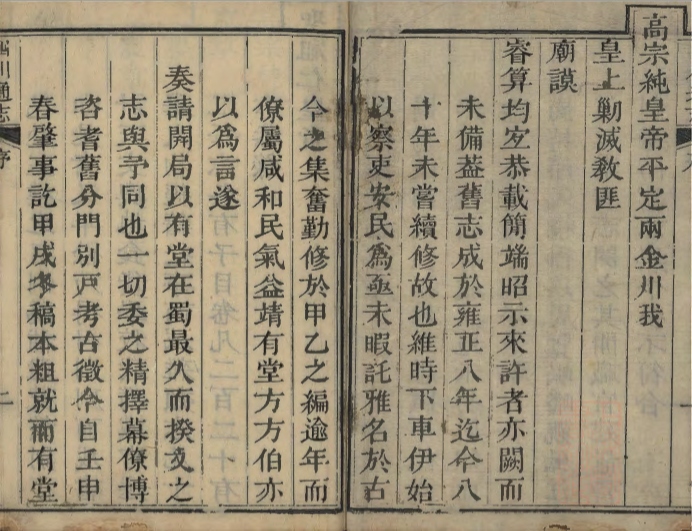 高宗純皇帝平定兩金川我
皇上勦滅敎匪
廟謨
睿算均宐恭載簡端昭示來許者亦闕而
未備葢舊志成於雍正八年迄今八
十年未嘗續修故也維時下車伊始
以察吏安民爲亟未暇託雅名於古
今之集奮勤修於甲乙之編逾年而
僚屬咸和民氣益靖有堂方方伯亦
以爲言遂
奏請開局以有堂在蜀最久而揆文之
志與予同也一切委之精擇幕僚博
咨耆舊分門別戸考古徵今自壬申
春肇事訖甲戌冬稿本粗就而有堂
川通志
序
二